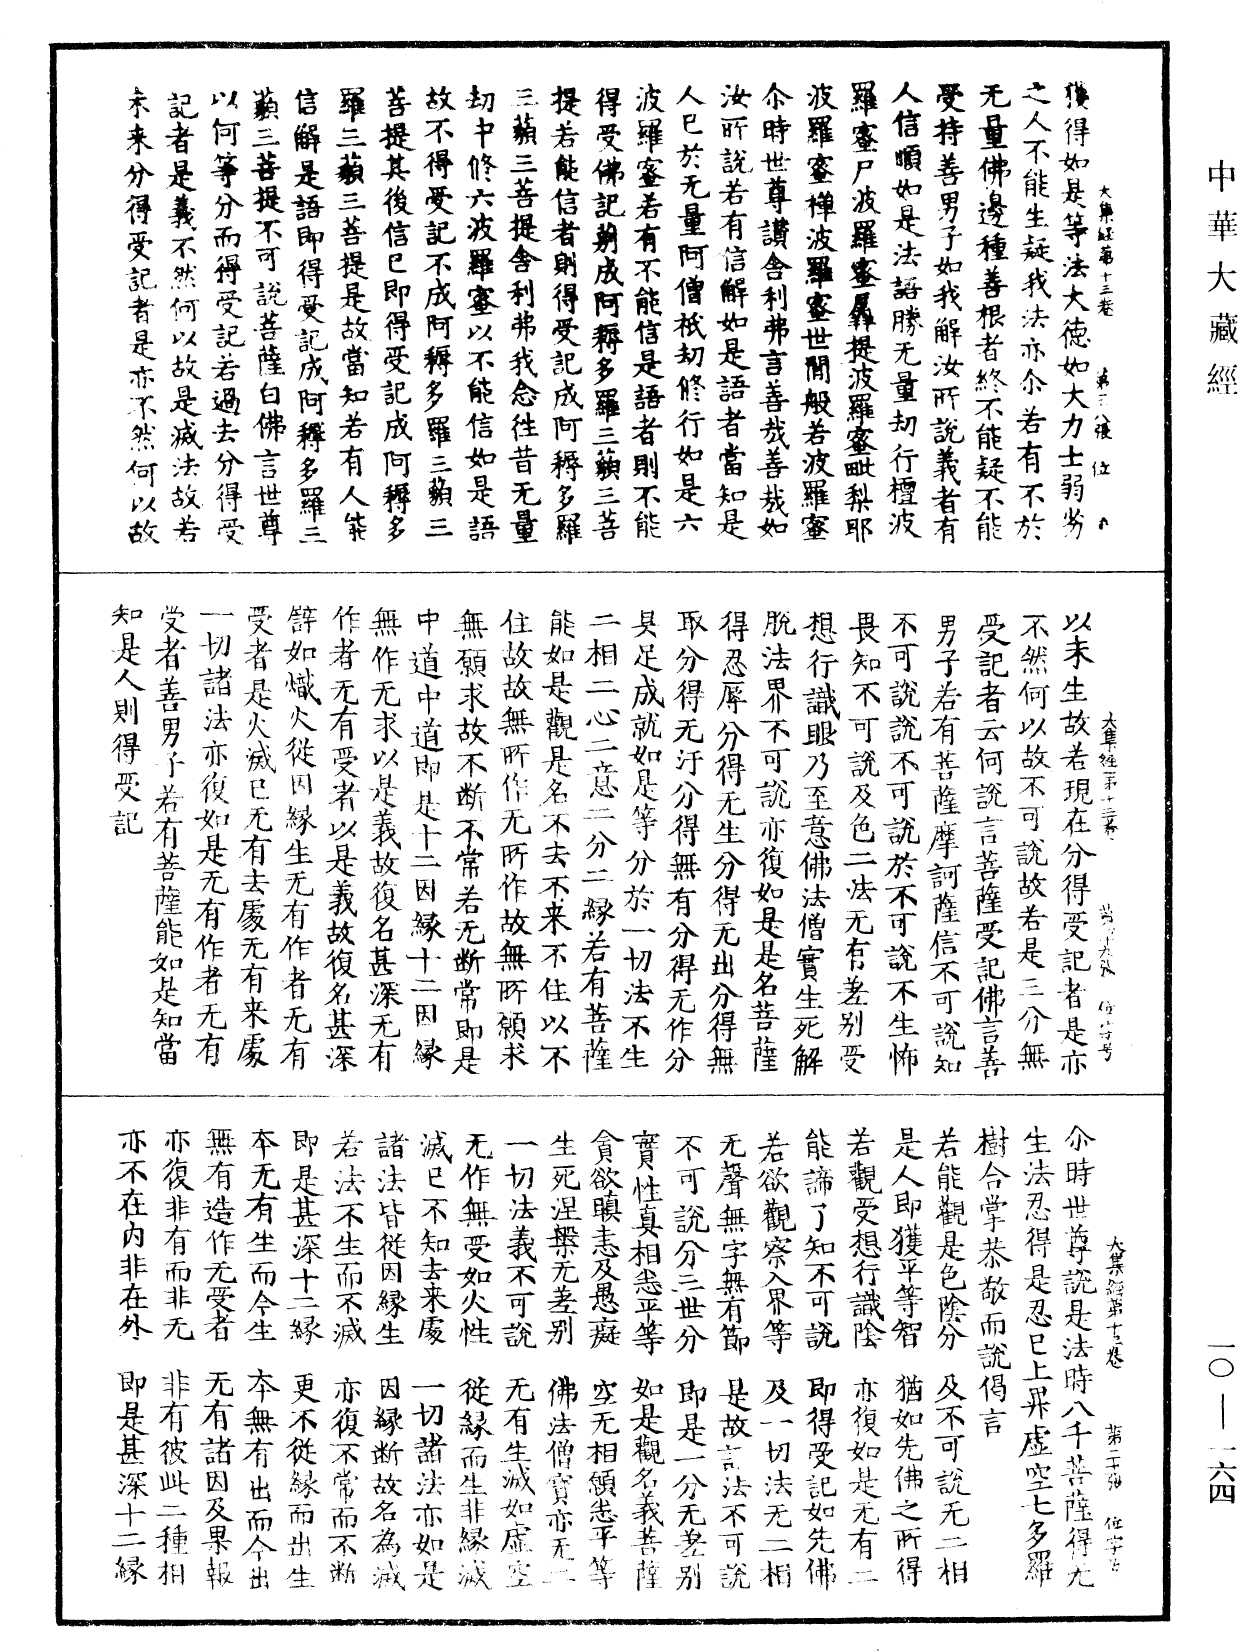 中華大藏經
獲得如是等法大德如大力士弱劣
之人不能生疑我法亦尒若有不於
无量佛邊種善根者終不能疑不能
受持善男子如我解汝所說義者有
人信順如是法語勝无量劫行檀波
羅蜜尸波羅蜜羼提波羅蜜毗梨耶
波羅蜜禪波羅蜜世間般若波羅蜜
尒時世尊讚舍利弗言善哉善哉如
汝所說若有信解如是語者當知是
人已於无量阿僧祇劫修行如是六
波羅蜜若有不能信是語者則不能
得受佛記莂成阿耨多羅三藐三菩
提若能信者則得受記成阿耨多羅
三藐三菩提舍利弗我念往昔无量
劫中修六波羅蜜以不能信如是語
故不得受記不成阿耨多羅三藐三
菩提其後信已即得受記成阿耨多
羅三藐三菩提是故當知若有人能
信解是語即得受記成阿耨多羅三
藐三菩提不可說菩薩白佛言世尊
以何等分而得受記若過去分得受
記者是義不然何以故是滅法故若
未來分得受記者是亦不然何以故
大集經第十三卷 第三八張 位
以未生故若現在分得受記者是亦
不然何以故不可說故若是三分無
受記者云何說言菩薩受記佛言善
男子若有菩薩摩訶薩信不可說知
不可說說不可說於不可說不生怖
畏知不可說及色二法无有差别受
想行識眼乃至意佛法僧寶生死解
脫法界不可說亦復如是是名菩薩
得忍辱分得无生分得无出分得無
取分得无汙分得無有分得无作分
具足成就如是等分於一切法不生
二相二心二意二分二緣若有菩薩
能如是觀是名不去不來不住以不
住故故無所作无所作故無所願求
無願求故不斷不常若无斷常即是
中道中道即是十二因緣十二因緣
無作无求以是義故復名甚深无有
作者无有受者以是義故復名甚深
辟如熾火從因緣生无有作者无有
受者是火滅已无有去處无有來處
一切諸法亦復如是无有作者无有
受者善男子若有菩薩能如是知當
知是人則得受記
大集經第十三卷
尒時世尊說是法時八千菩薩得无
生法忍得是忍已上昇虛空七多羅
樹合掌恭敬而說偈言
若能觀是色陰分 及不可說无二相
是人即獲平等智 猶如先佛之所得
若觀受想行識陰 亦復如是无有二
能諦了知不可說 即得受記如先佛
若欲觀察入界等 及一切法无二相
无聲無字無有節 是故言法不可說
不可說分三世分 即是一分无差别
實性真相悉平等 如是觀名義菩薩
貪欲瞋恚及愚癡 空无相願悉平等
生死涅槃无差别 佛法僧寶亦无二
一切法義不可說 无有生滅如虛空
无作無受如火性 從緣而生非緣滅
滅已不知去來處 一切諸法亦如是
諸法皆從因緣生 因緣斷故名為滅
若法不生而不滅 亦復不常而不斷
即是甚深十二緣 更不從緣而出生
本无有生而今生 本無有出而今出
無有造作无受者 无有諸因及果報
亦復非有而非无 非有彼此二種相
亦不在內非在外 即是甚深十二緣
大集經第十三卷 第二十張 位字号
一〇—一六四